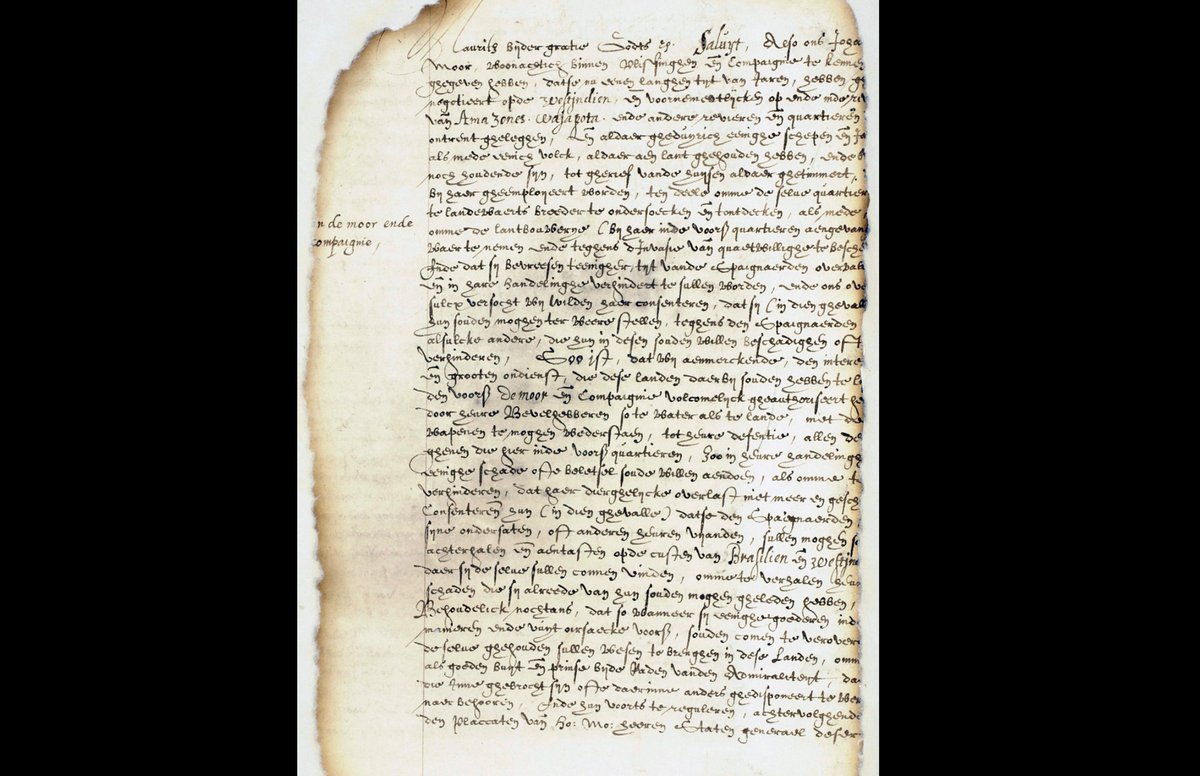 n de moor ende
compaignie,
Maurits bijder gratie Godts etc. Saluyt, Also ons Joha
Moor, woonachtich binnen Vlissinghen eñ Compaignie te kennen
ghegeven hebben, datse nu eenen langhen tijt van Jaren, hebben ge
negotieert opde Westindien, eñ voornementlijcken op ende inde re
van Amazones. Wajapota. ende andere revieren eñ quartieren
ontrent gheleghen, Eñ aldaer ghedurich eenighe schepen eñ Ja
als mede eenich volck, aldaer aen lant ghehouden hebben, ende
noch houdende sijn, tot gherief vande huysen aldaer ghetimmert,
bij haer gheemployeert worden, ten deele omme de selve quartier
te landewaerts breeder te ondersoecken eñ tontdecken, als mede
omme de lantbouwerye (bij haer inde voorß quartieren aengevan
waer te nemen ende teghens d'Invasie van quaetwillighe te besche
Ende dat sij bevreesen teenigher tijt vande Spaignaerden overval
eñ in hare handelinghe verhindert te sullen worden, ende ons ove
sulcx versocht wij wilden haer consenteren, dat sij (in dien ghevall
hun souden moghen ter weere stellen, teghens den Spaignaerden
alsulcke andere, die hun in desen souden willen beschadighen oft
verhinderen, Soo ist, dat wij aenmerckende, den intere
eñ grooten ondienst, die dese landen daerbij souden hebben te l
den voorß de moor eñ Compaignie volcomelijck gheauthoriseert he
door heure Bevelhebberen so te water als te lande, met de
wapenen te moghen wederstaen, tot heure defentie, allen de
ghenen die hier inde voorß quartieren, zoo in heure handelingh
eenighe schade ofte beletsel soude willen aendoen, als omme t
verhinderen, dat haer dierghelijcke overlast niet meer en gesch
Consenteren hun (in dien ghevalle) datse den Spaignaerden
sijne ondersaten, oft anderen heuren vijanden, sullen moghen
achterhalen eñ aentasten opde custen van Brasilien eñ Westin
daer sij de selve sullen comen vinden, omme te verhalen heur
schaden die sij alreede van hun souden moghen gheleden hebben,
Behoudelick nochtans, dat so wanneer sij eenighe goederen ind
manieren ende uuyt oirsaecke voorß, souden comen te verover
de selve ghehouden sullen wesen te brenghen in dese Landen, omm
als goeden buijt eñ prinse bijde Raden vanden Admiraliteyt, da
die inne ghebrocht sijn ofte daerinne anders ghedisponeert te wer
naer behooren, Ende hun voorts te reguleren, achtervolghende
den Placcaten van Ho: Mo: heeren Staten generael deser